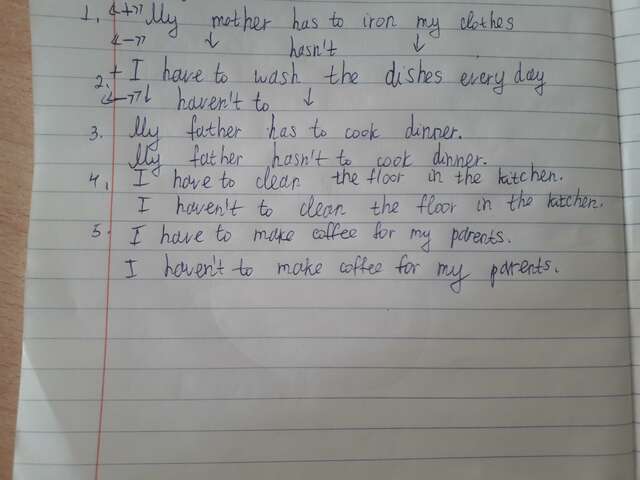 1. «+» My mother has to iron my clothes
«-» ↓ hasn't ↓
2. + I have to wash the dishes every day
«-» ↓ haven't to ↓
3. My father has to cook dinner.
My father hasn't to cook dinner.
4. I have to clean the floor in the kitchen.
I haven't to clean the floor in the kitchen.
5. I have to make coffee for my parents.
I haven't to make coffee for my parents.